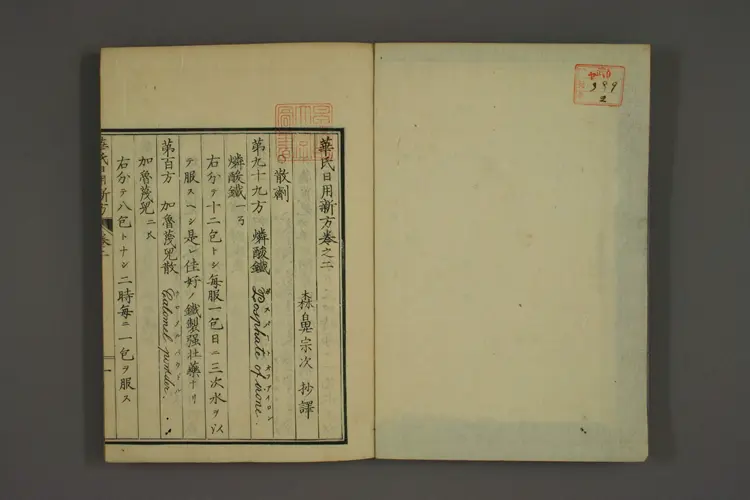 華氏日用新方卷之二
森鼻宗次 抄譯
散劑
第九十九方 燐酸鐵 Posphate of irone.
燐酸鐵 一ゟ
右分テ十二包トシ毎服一包日ニ三次水ヲ以
テ服スヘシ是レ佳好ノ鐵製强壯藥ナリ
第百方 加魯茂兒散 Calomel powder.
加魯茂兒 二氏
右分テ八包トナシ二時毎ニ一包ヲ服ス
華氏日用新方 卷二
一
399
2